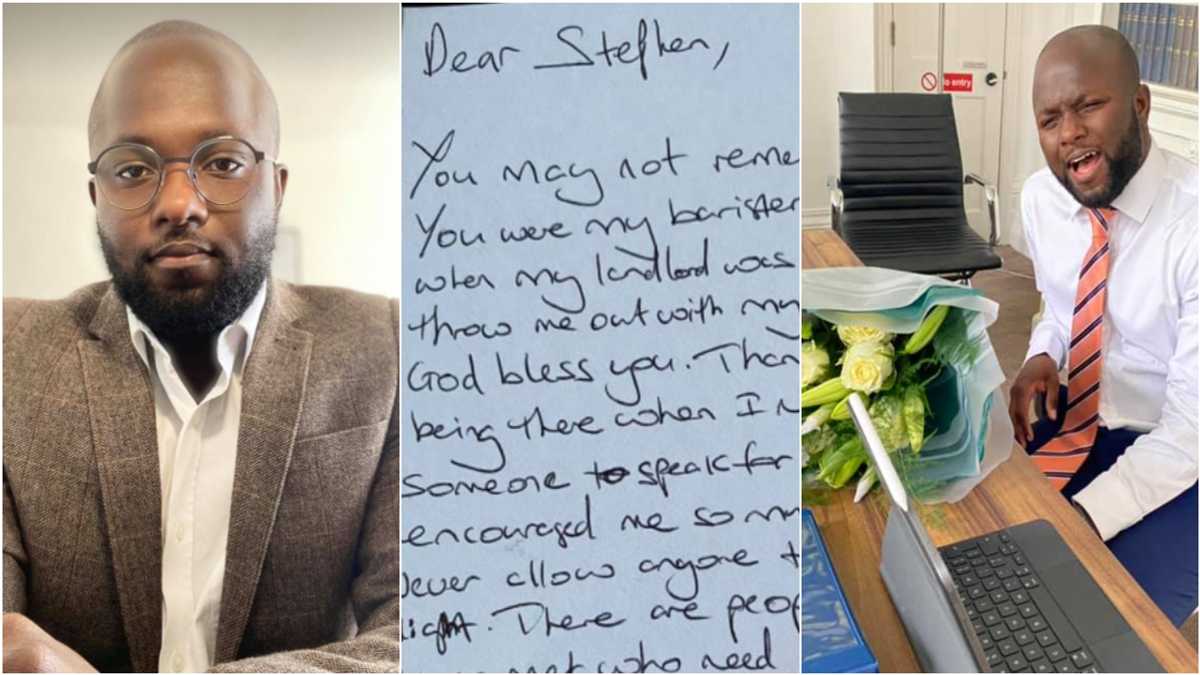 Dear Stephen,
You may not reme
You were my barister
when my landlord was
throw me out with my
God bless you. Than
being there when I n
someone to speak for
encouraged me so mu
Never allow anyone t
light. There are peop
who need
no entry